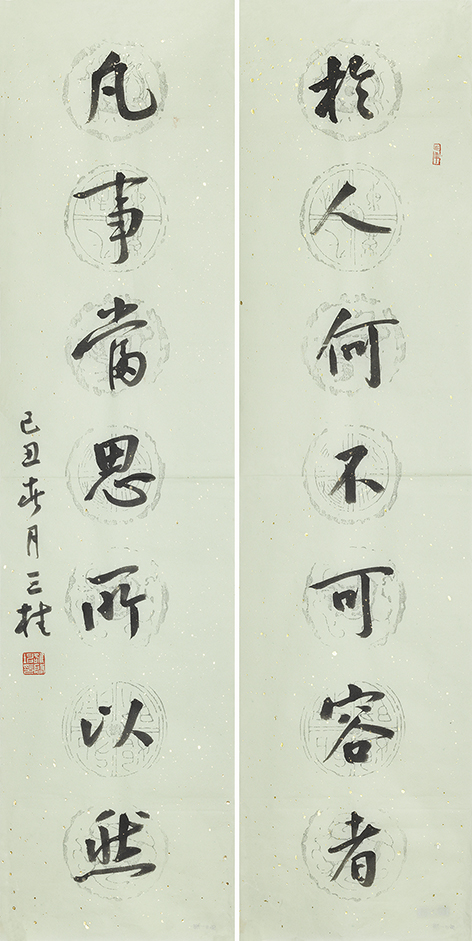 於人何不可容者
凡事當思所以然
己丑春月三桂